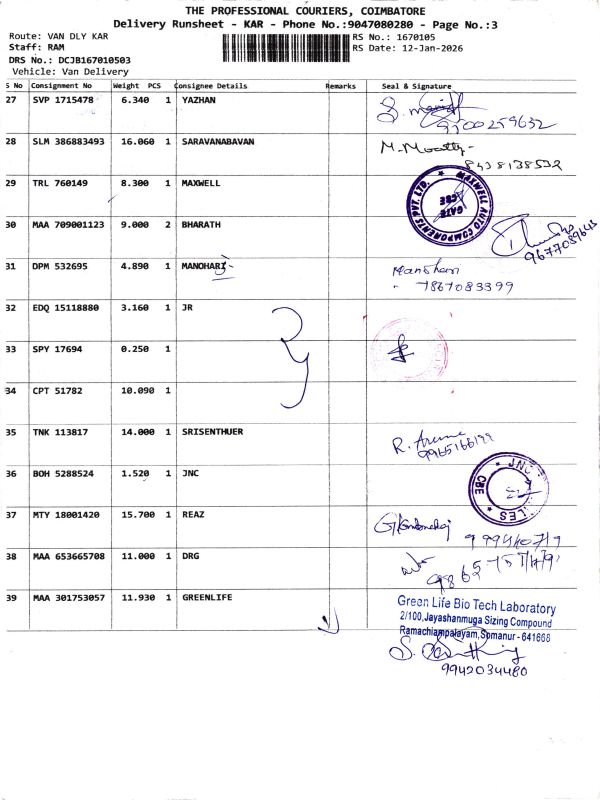 THE PROFESSIONAL COURIERS, COIMBATORE
Delivery Runsheet - KAR - Phone No.:9047080280 - Page No.:3
Route: VAN DLY KAR
RS No.: 1670105
Staff: RAM
RS Date: 12-Jan-2026
DRS No.: DCJB167010503
Vehicle: Van Delivery
S No Consignment No Weight PCS Consignee Details Remarks Seal & Signature
27 SVP 1715478 6.340 1 YAZHAN
9500259632
28 SLM 386883493 16.060 1 SARAVANABAVAN M. Moorthy
8438138532
29 TRL 760149 8.300 1 MAXWELL
MAXWELL AUTO COMPONENTS PVT. LTD.
GATE
CBE
30 MAA 709001123 9.000 2 BHARATH
9677089645
31 DPM 532695 4.890 1 MANOHARI Manohari
7867083399
32 EDQ 15118880 3.160 1 JR
33 SPY 17694 0.250 1
34 CPT 51782 10.090 1
35 TNK 113817 14.000 1 SRISENTHUER R. Aruna
9965166199
36 BOH 5288524 1.520 1 JNC
JNC
CBE
37 MTY 18001420 15.700 1 REAZ
38 MAA 653665708 11.000 1 DRG
39 MAA 301753057 11.930 1 GREENLIFE
Green Life Bio Tech Laboratory
2/100,Jayashanmuga Sizing Compound
Ramachiampalayam,Somanur - 641668
9942034480